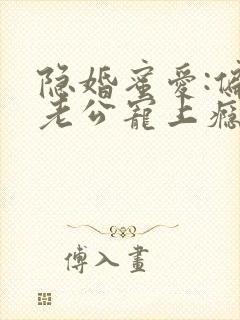 隐婚蜜爱:偏
老公宠上瘾
傅入画